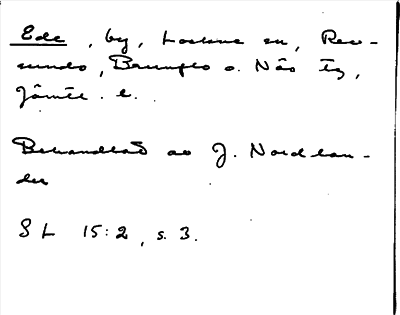 Ede, by, Lockne sn, Rev-
sunds, Brunflo o. Näs tg,
Jämtl. l.
Behandlad av J. Nordlan-
der
SL 15:2, s. 3.